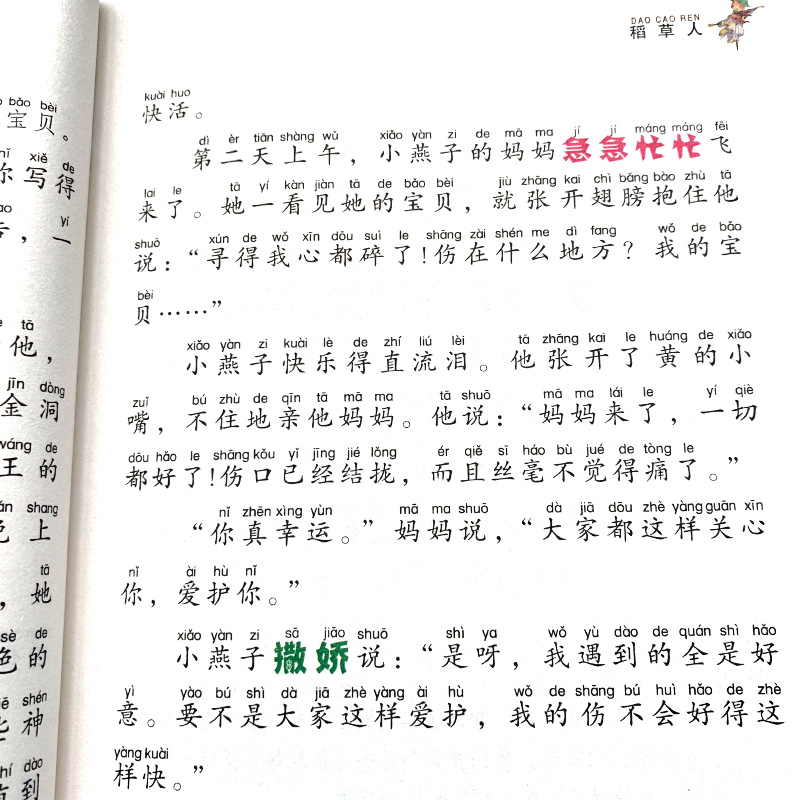 DAO CAO REN
稻草人
宝贝。
写得
一
他，
金洞
王的
上
，她
色的
神
到
kuài huo
快活。
dì èr tiān shàng wǔ xiǎo yàn zi de mā ma jí jí máng máng fēi
第二天上午，小燕子的妈妈急急忙忙飞
lai le tā yí kàn jiàn tā de bǎo bèi jiù zhāng kai chì bǎng bào zhù tā
来了。她一看见她的宝贝，就张开翅膀抱住他
shuō xún de wǒ xīn dōu suì le shāng zài shén me dì fang wǒ de bǎo
说：“寻得我心都碎了！伤在什么地方？我的宝
bèi
贝……”
xiǎo yàn zi kuài lè de zhí liú lèi tā zhāng kai le huáng de xiǎo
小燕子快乐得直流泪。他张开了黄的小
zuǐ bú zhù de qīn tā mā ma tā shuō mā ma lái le yí qiè
嘴，不住地亲他妈妈。他说：“妈妈来了，一切
dōu hǎo le shāng kǒu yǐ jīng jié lǒng ér qiě sī háo bù jué de tòng le
都好了！伤口已经结拢，而且丝毫不觉得痛了。”
nǐ zhēn xìng yùn mā ma shuō dà jiā dōu zhè yàng guān xīn
“你真幸运。”妈妈说，“大家都这样关心
nǐ ài hù nǐ
你，爱护你。”
xiǎo yàn zi sā jiāo shuō shì ya wǒ yù dào de quán shì hǎo
小燕子撒娇说：“是呀，我遇到的全是好
yì yào bú shì dà jiā zhè yàng ài hù wǒ de shāng bú huì hǎo de zhè
意。要不是大家这样爱护，我的伤不会好得这
yàng kuài
样快。”